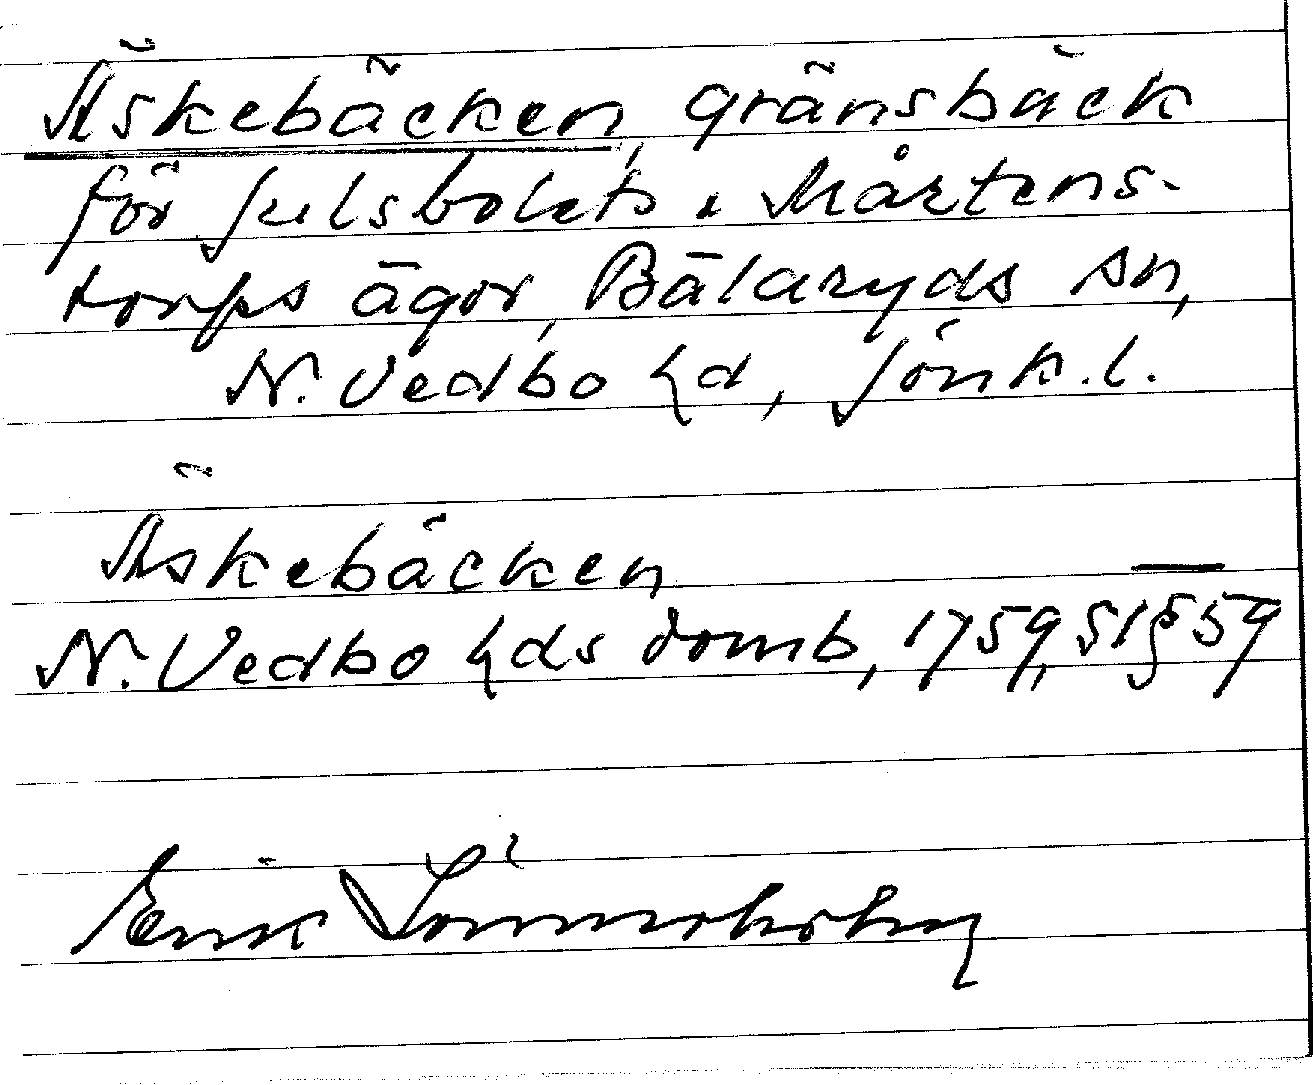 Äskebäcken, gränsbäck
för Julsbolets o Mårtens-
torps ägor, Bälaryds sn,
N. Vedbo hd, Jönk. l.
Äskebäcken
N. Vedbo hds domb, 1759, 51 § 59
Erik